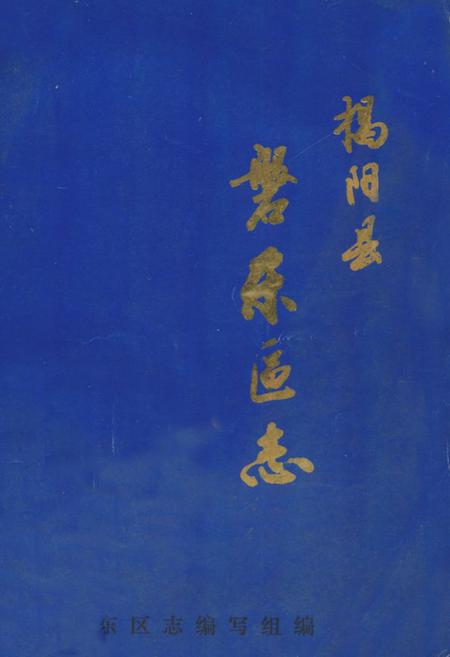 揭阳县
磐东区志
东区志编写组编